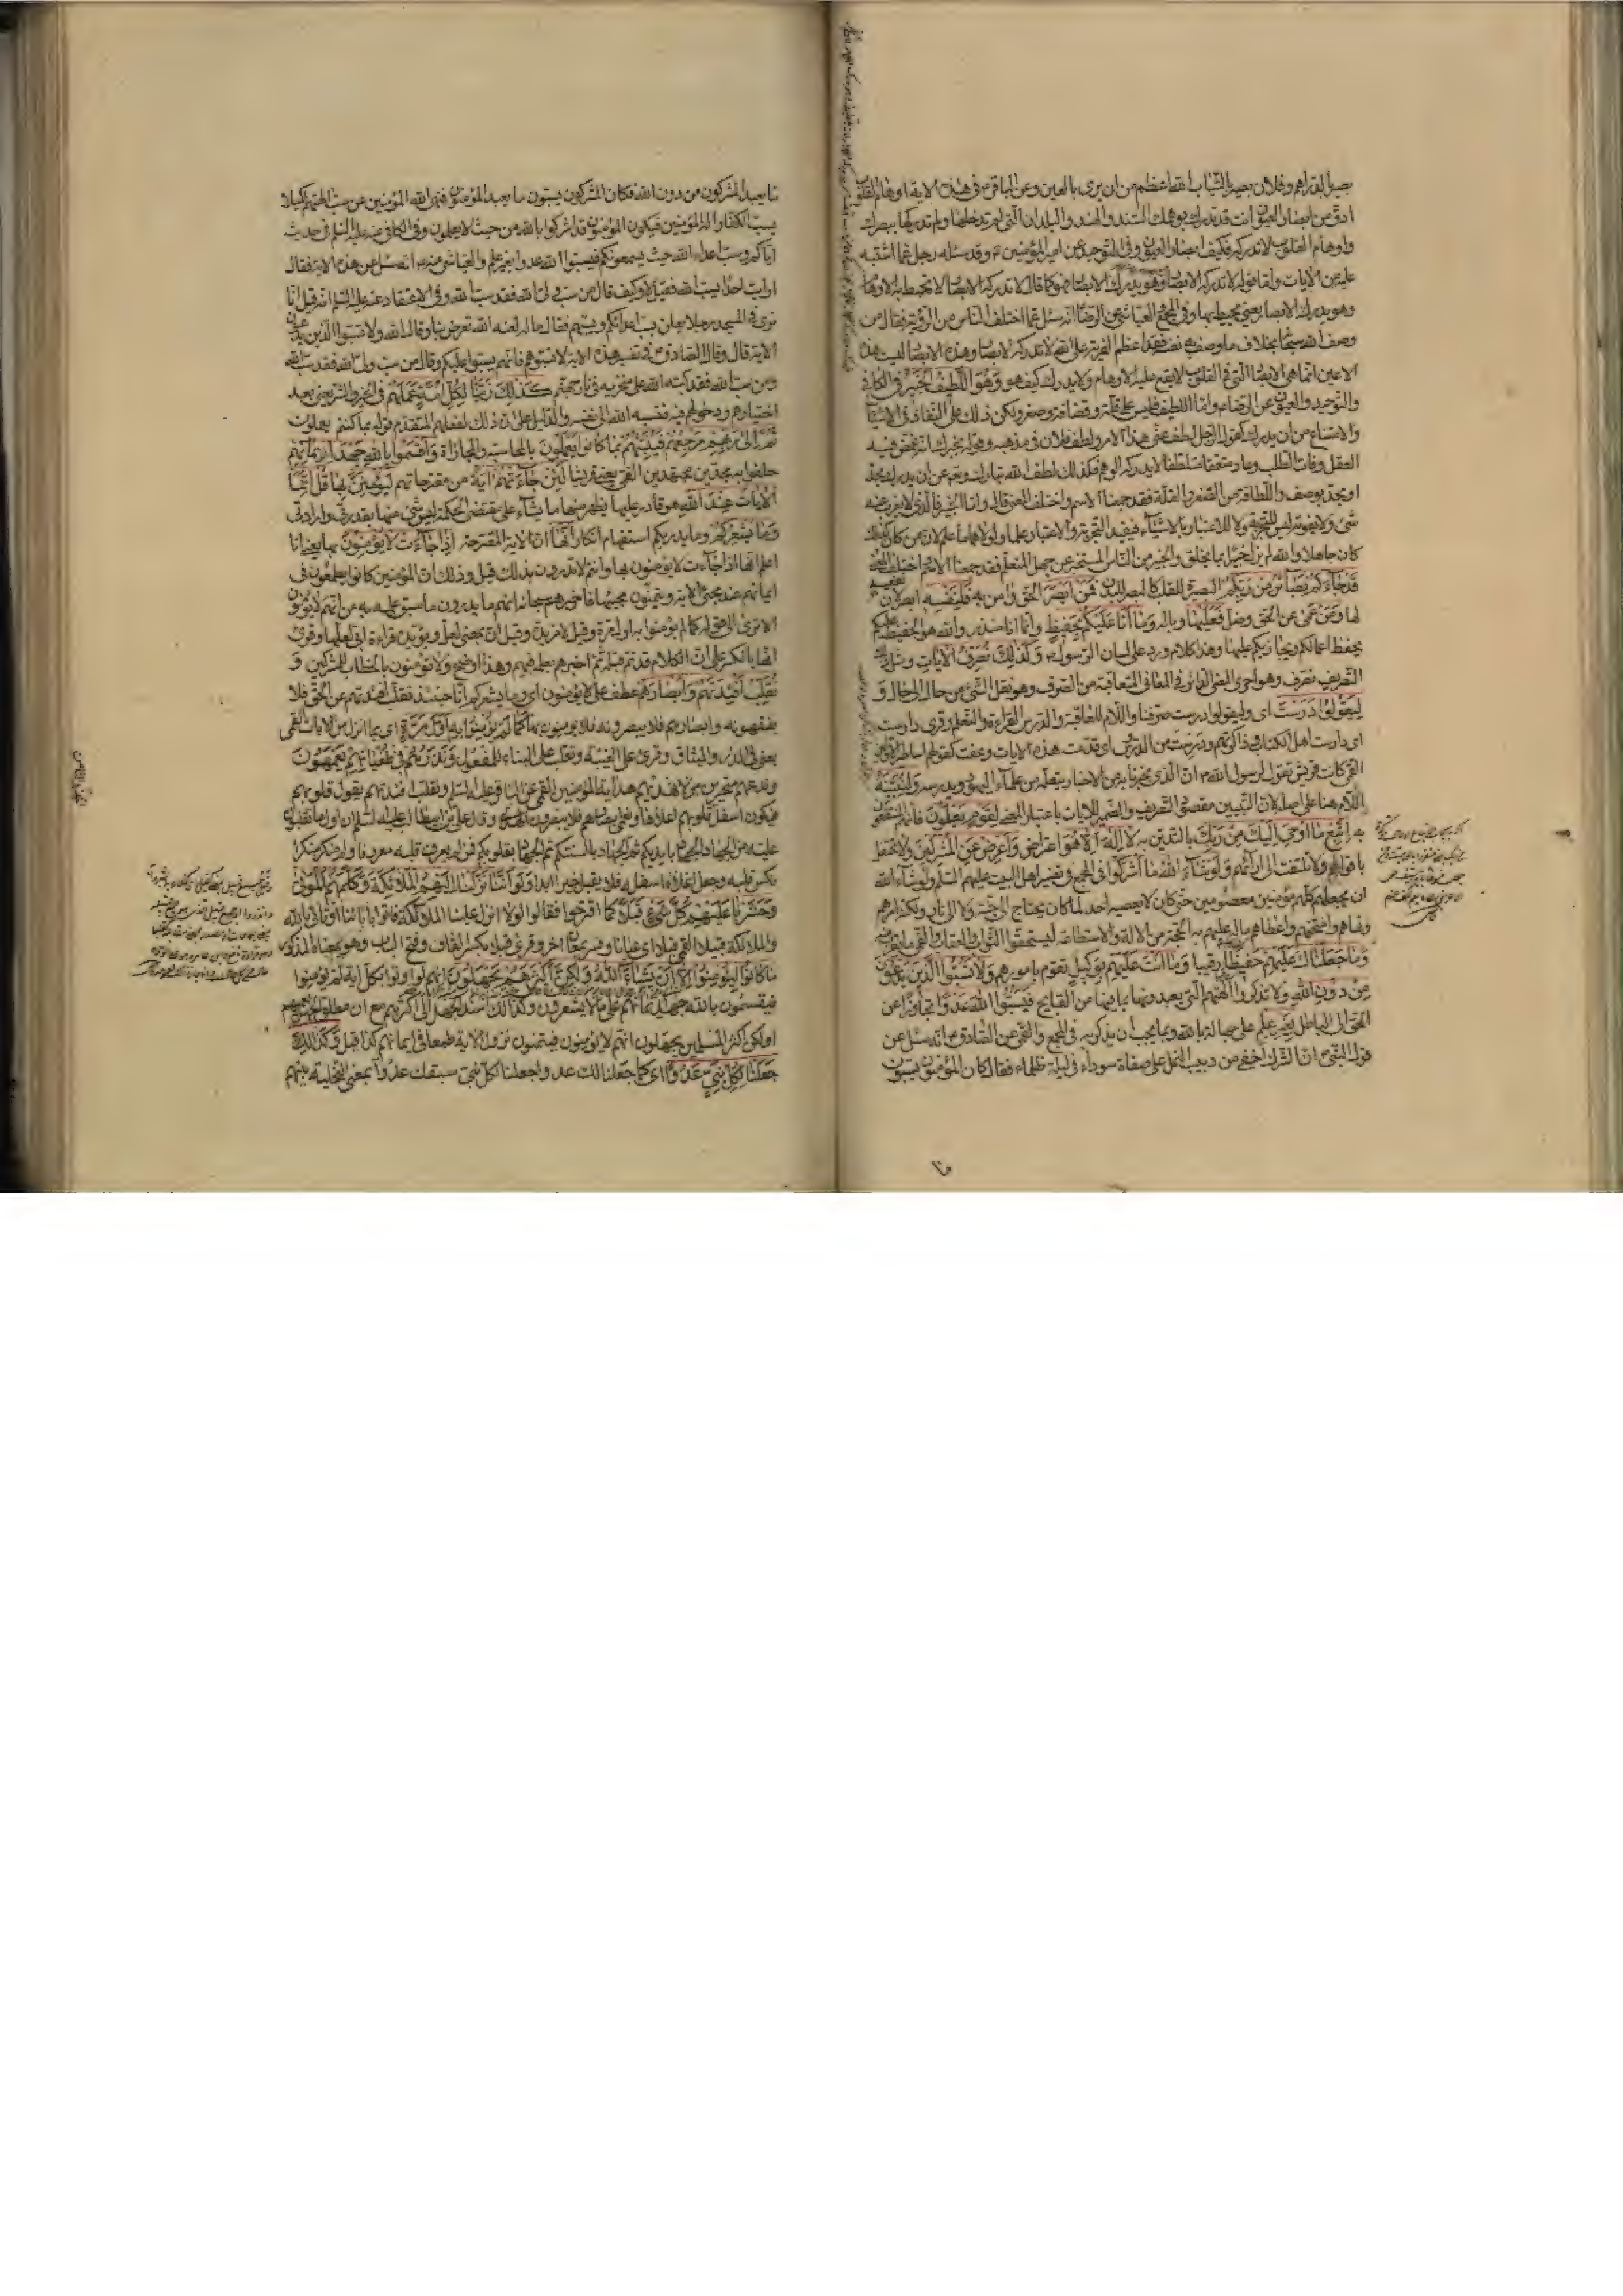 بصير بالدراهم وفلان بصير بالثياب الله اعظم من ان يرى بالعين وعن الباقر ع في هذه الاية اوهام القلوب
ادق من ابصار العيون انت قد تدرك بوهمك السند والهند والبلدان التي لم تدخلها ولم تدركها ببصرك
واوهام القلوب لا تدركه فكيف ابصار العيون وفي التوحيد عن امير المؤمنين ع وقد سئله رجل عما اشتبه
عليه من الايات واما قوله لا تدركه الابصار وهو يدرك الابصار فهو كما قال لا تدركه الابصار لا تحيط به الاوهام
وهو يدرك الابصار يعني يحيط بها وفي المجمع العياشي عن الرضا انه سئل عما اختلف الناس من الرؤية فقال من
وصف الله سبحانه بخلاف ما وصف به نفسه فقد اعظم الفرية على الله لا تدركه الابصار وهذه الابصار ليست هذه
الاعين انما هي الابصار التي في القلوب لا يقع عليه الاوهام ولا يدرك كيف هو وهو اللطيف الخبير في الكافي
والتوحيد والعيون عن الرضا ع واما اللطيف فليس على قلة وقضافة وصغر ولكن ذلك على النفاذ في الاشياء
والامتناع من ان يدرك كقولك للرجل لطف عني هذا الامر ولطف فلان في مذهبه وقوله يخبرك انه غمض فيه
العقل وفات الطلب وعاد متعمقا متلطفا لا يدركه الوهم فكذلك لطف الله تبارك وتعالى عن ان يدرك بحد
او يحد بوصف واللطافة من الصغر والقلة فقد جمعنا الاسم واختلف المعنى قال واما الخبير فالذي لا يعزب عنه
شئ ولا يفوته ليس للتجربة ولا للاعتبار بالاشياء فيفيده التجربة والاعتبار علما ولولاهما ما علم لان من كان كذلك
كان جاهلا والله لم يزل خبيرا بما يخلق والخبير من الناس المستخبر عن جهل المتعلم فقد جمعنا الاسم اختلف المعنى
قد جاءكم بصائر من ربكم البصيرة للقلب كالبصر للبدن فمن ابصر الحق وامن به فلنفسه ابصر لان نفعه
لها ومن عمي عن الحق وضل فعليها وباله وما انا عليكم بحفيظ وانما انا منذر والله هو الحفيظ عليكم
يحفظ اعمالكم ويجازيكم عليها وهذا كلام ورد على لسان الرسول ص وكذلك نصرف الايات ومثل ذلك
التصريف نصرف وهو اجراء المعنى الدائر في المعاني المتعاقبة من الصرف وهو نقل الشئ من حال الى حال و
ليقولوا درست اي وليقولوا درست صرفنا واللام للعاقبة والدرس القراءة والتعلم وقرئ دارست
اي دارست اهل الكتاب وذاكرتهم ودرست من الدروس اي قدمت هذه الايات وعفت كقولهم اساطير الاولين
القمي كانت قريش تقول لرسول الله ص ان الذي تخبرنا به من الاخبار تتعلمه من علماء اليهود وتدرسه ولنبينه
اللام هنا على اصله لان التبيين مقصود التصريف والضمير للايات باعتبار المعنى لقوم يعلمون فانهم المنتفعون
به اتبع ما اوحي اليك من ربك بالتدين به لا اله الا هو اعتراض واعرض عن المشركين ولا تحتفل
باقوالهم ولا تلتفت الى ارائهم ولو شاء الله ما اشركوا في المجمع وفي تفسير اهل البيت عليهم السلم ولو شاء الله
ان يجعلهم كلهم مؤمنين معصومين حتى كان لا يعصيه احد لما كان يحتاج الى جنة ولا الى نار ولكنه امرهم
ونهاهم وامتحنهم واعطاهم ما له عليهم به الحجة من الالة والاستطاعة ليستحقوا الثواب والعقاب والقمي ما يقرب منه
وما جعلناك عليهم حفيظا رقيبا وما انت عليهم بوكيل تقوم بامورهم ولا تسبوا الذين يدعون
من دون الله ولا تذكروا الهتهم التي يعبدونها بما فيها من القبايح فيسبوا الله عدوا تجاوزا عن
الحق الى الباطل بغير علم على جهالة بالله وبما يجب ان يذكر به في المجمع والقمي عن الصادق ع انه سئل عن
قول النبي ص ان الشرك اخفى من دبيب النمل على صفاة سوداء في ليلة ظلماء فقال كان المؤمنون يسبون
ما يعبد المشركون من دون الله فكان المشركون يسبون ما يعبد المؤمنون فنهى الله المؤمنين عن سب الهتهم لكيلا
يسب الكفار اله المؤمنين فيكون المؤمنون قد اشركوا بالله من حيث لا يعلمون وفي الكافي عنه عليه السلم في حديث
اياكم وسب اعداء الله حيث يسمعونكم فيسبوا الله عدوا بغير علم والعياشي عنه ع انه سئل عن هذه الاية فقال
ارايت احدا يسب الله فقيل لا وكيف قال من سب ولي الله فقد سب الله وفي الاعتقادات عنه عليه السلم انه قيل انا
نرى في المسجد رجلا يعلن بسب اعدائكم ويسبهم فقال ما له لعنه الله تعرض بنا وقال الله ولا تسبوا الذين يدعون
الاية قال وقال الصادق ع في تفسير هذه الاية لا تسبوهم فانهم يسبوا عليكم وقال من سب ولي الله فقد سب الله
ومن سب الله فقد كبه الله على منخريه في نار جهنم كذلك زينا لكل امة عملهم في الخير والشر يعني بعد
اختيارهم ودخولهم فيه فنسبه الله الى نفسه والدليل على ان ذلك لفعلهم المتقدم قوله بما كنتم يعملون
ثم الى ربهم مرجعهم فينبئهم بما كانوا يعملون بالمحاسبة والمجازاة واقسموا بالله جهد ايمانهم
حلفوا به مجدين مجتهدين القمي يعني قريشا لئن جاءتهم اية من مقترحاتهم ليؤمنن بها قل انما
الايات عند الله هو قادر عليها يظهر منها ما يشاء على مقتضى الحكمة ليس شئ منها بقدرتي وارادتي
وما يشعركم وما يدريكم استفهام انكار انها ان الاية المقترحة اذا جاءت لا يؤمنون بها يعني انا
اعلم انها اذا جاءت لا يؤمنون بها وانتم لا تدرون بذلك قيل وذلك ان المؤمنين كانوا يطمعون في
ايمانهم عند مجئ الاية ويتمنون مجيئها فاخبرهم سبحانه انهم ما يدرون ما سبق علمه به من انهم لا يؤمنون
الا ترى الى قوله كما لم يؤمنوا به اول مرة وقيل لا مزيدة وقيل ان بمعنى لعل ويؤيده قراءة ابي لعلها وقرئ
انها بالكسر على ان الكلام قد تم قبله ثم اخبرهم بعلمه فيهم وهذا اوضح ولا تؤمنون بالخطاب للمشركين و
نقلب افئدتهم وابصارهم عطف على لا يؤمنون اي وما يشعركم انا حينئذ نقلب افئدتهم عن الحق فلا
يفقهونه وابصارهم فلا يبصرونه فلا يؤمنون بها كما لم يؤمنوا به اول مرة اي بما انزل من الايات القمي
يعني في الذر والميثاق وقرئ على الغيبة وتقلب على البناء للمفعول ونذرهم في طغيانهم يعمهون
وندعهم متحيرين لا نهديهم هداية المؤمنين القمي عن الباقر عليه السلم ونقلب افئدتهم يقول قلوبهم
فيكون اسفل قلوبهم اعلاها ونعمي ابصارهم فلا يبصرون الهدى وقال علي بن ابيطالب عليه السلم ان اول ما تقلبون
عليه من الجهاد الجهاد بايديكم ثم الجهاد بالسنتكم ثم الجهاد بقلوبكم فمن لم يعرف قلبه معروفا ولم ينكر منكرا
نكس قلبه وجعل اعلاه اسفله فلا يقبل خيرا ابدا ولو اننا نزلنا اليهم الملائكة وكلمهم الموتى
وحشرنا عليهم كل شئ قبلا كما اقترحوا فقالوا لولا انزل علينا الملائكة فاتوا بابائنا او تاتي بالله
والملائكة قبيلا القمي قبلا اي عيانا وفسر بمعان اخر وقرئ قبلا بكسر القاف وفتح الباء وهو بمعناه المذكور
ما كانوا ليؤمنوا الا ان يشاء الله ولكن اكثرهم يجهلون انهم لو اوتوا بكل اية لم يؤمنوا
فيقسمون بالله جهد ايمانهم على ما لا يشعرون وكذلك اسند الجهل الى اكثرهم مع ان مطلق الجهل يعمهم
او لكن اكثر المسلمين يجهلون انهم لا يؤمنون فيتمنون نزول الاية طمعا في ايمانهم كذا قيل وكذلك
جعلنا لكل نبي عدوا اي كما جعلنا لك عدوا جعلنا لكل نبي سبقك عدوا بمعنى التخلية بينهم